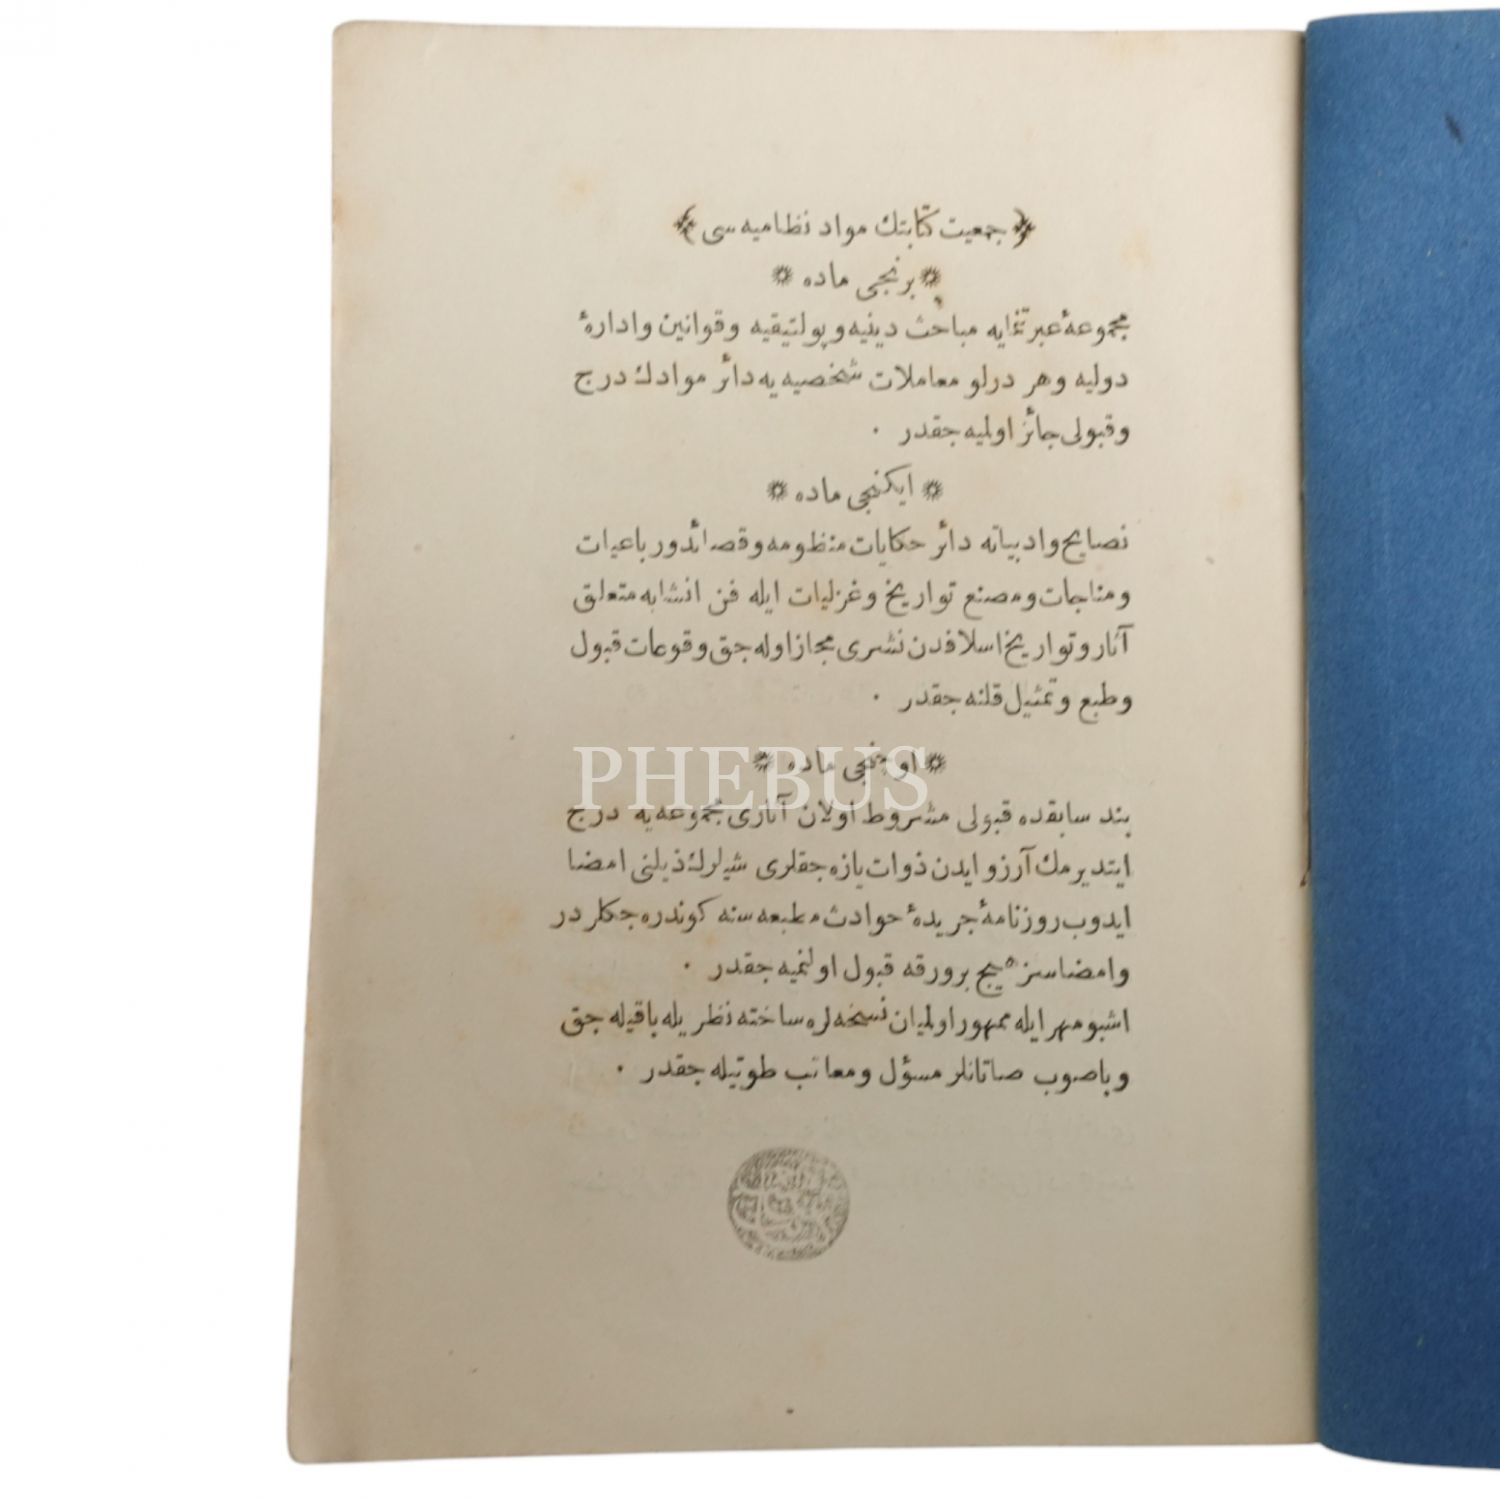 ﴿ جمعيت كتابتك مواد نظاميه سى ﴾
* برنجى ماده *
مجموعهٔ عبرتنمايه مباحث دينيه و پولتيقيه و قوانين و ادارهٔ
دوليه و هر درلو معاملات شخصيه يه دائر موادك درج
و قبولى جائز اولميه جقدر ٠
* ايكنجى ماده *
نصايح و ادبياته دائر حكايات منظومه و قصائد و رباعيات
و مناجات و مصنع تواريخ و غزليات ايله فن انشابه متعلق
آثار و تواريخ اسلافدن نشرى مجاز اوله جق وقوعات قبول
و طبع و تمثيل قلنه جقدر ٠
* اوچنجى ماده *
PHEBUS
بند سابقده قبولى مشروط اولان آثارى مجموعه يه درج
ايتديرمك آرزو ايدن ذوات يازه جقلرى شيلرك ذيلنى امضا
ايدوب روزنامهٔ جريدهٔ حوادث مطبعه سنه كوندره جكلر در
و امضاسز هيچ بر ورقه قبول اولنميه جقدر ٠
اشبو مهر ايله ممهور اولميان نسخه لره ساخته نظريله باقيله جق
و باصوب صاتانلر مسؤل و معاتب طوتيله جقدر ٠